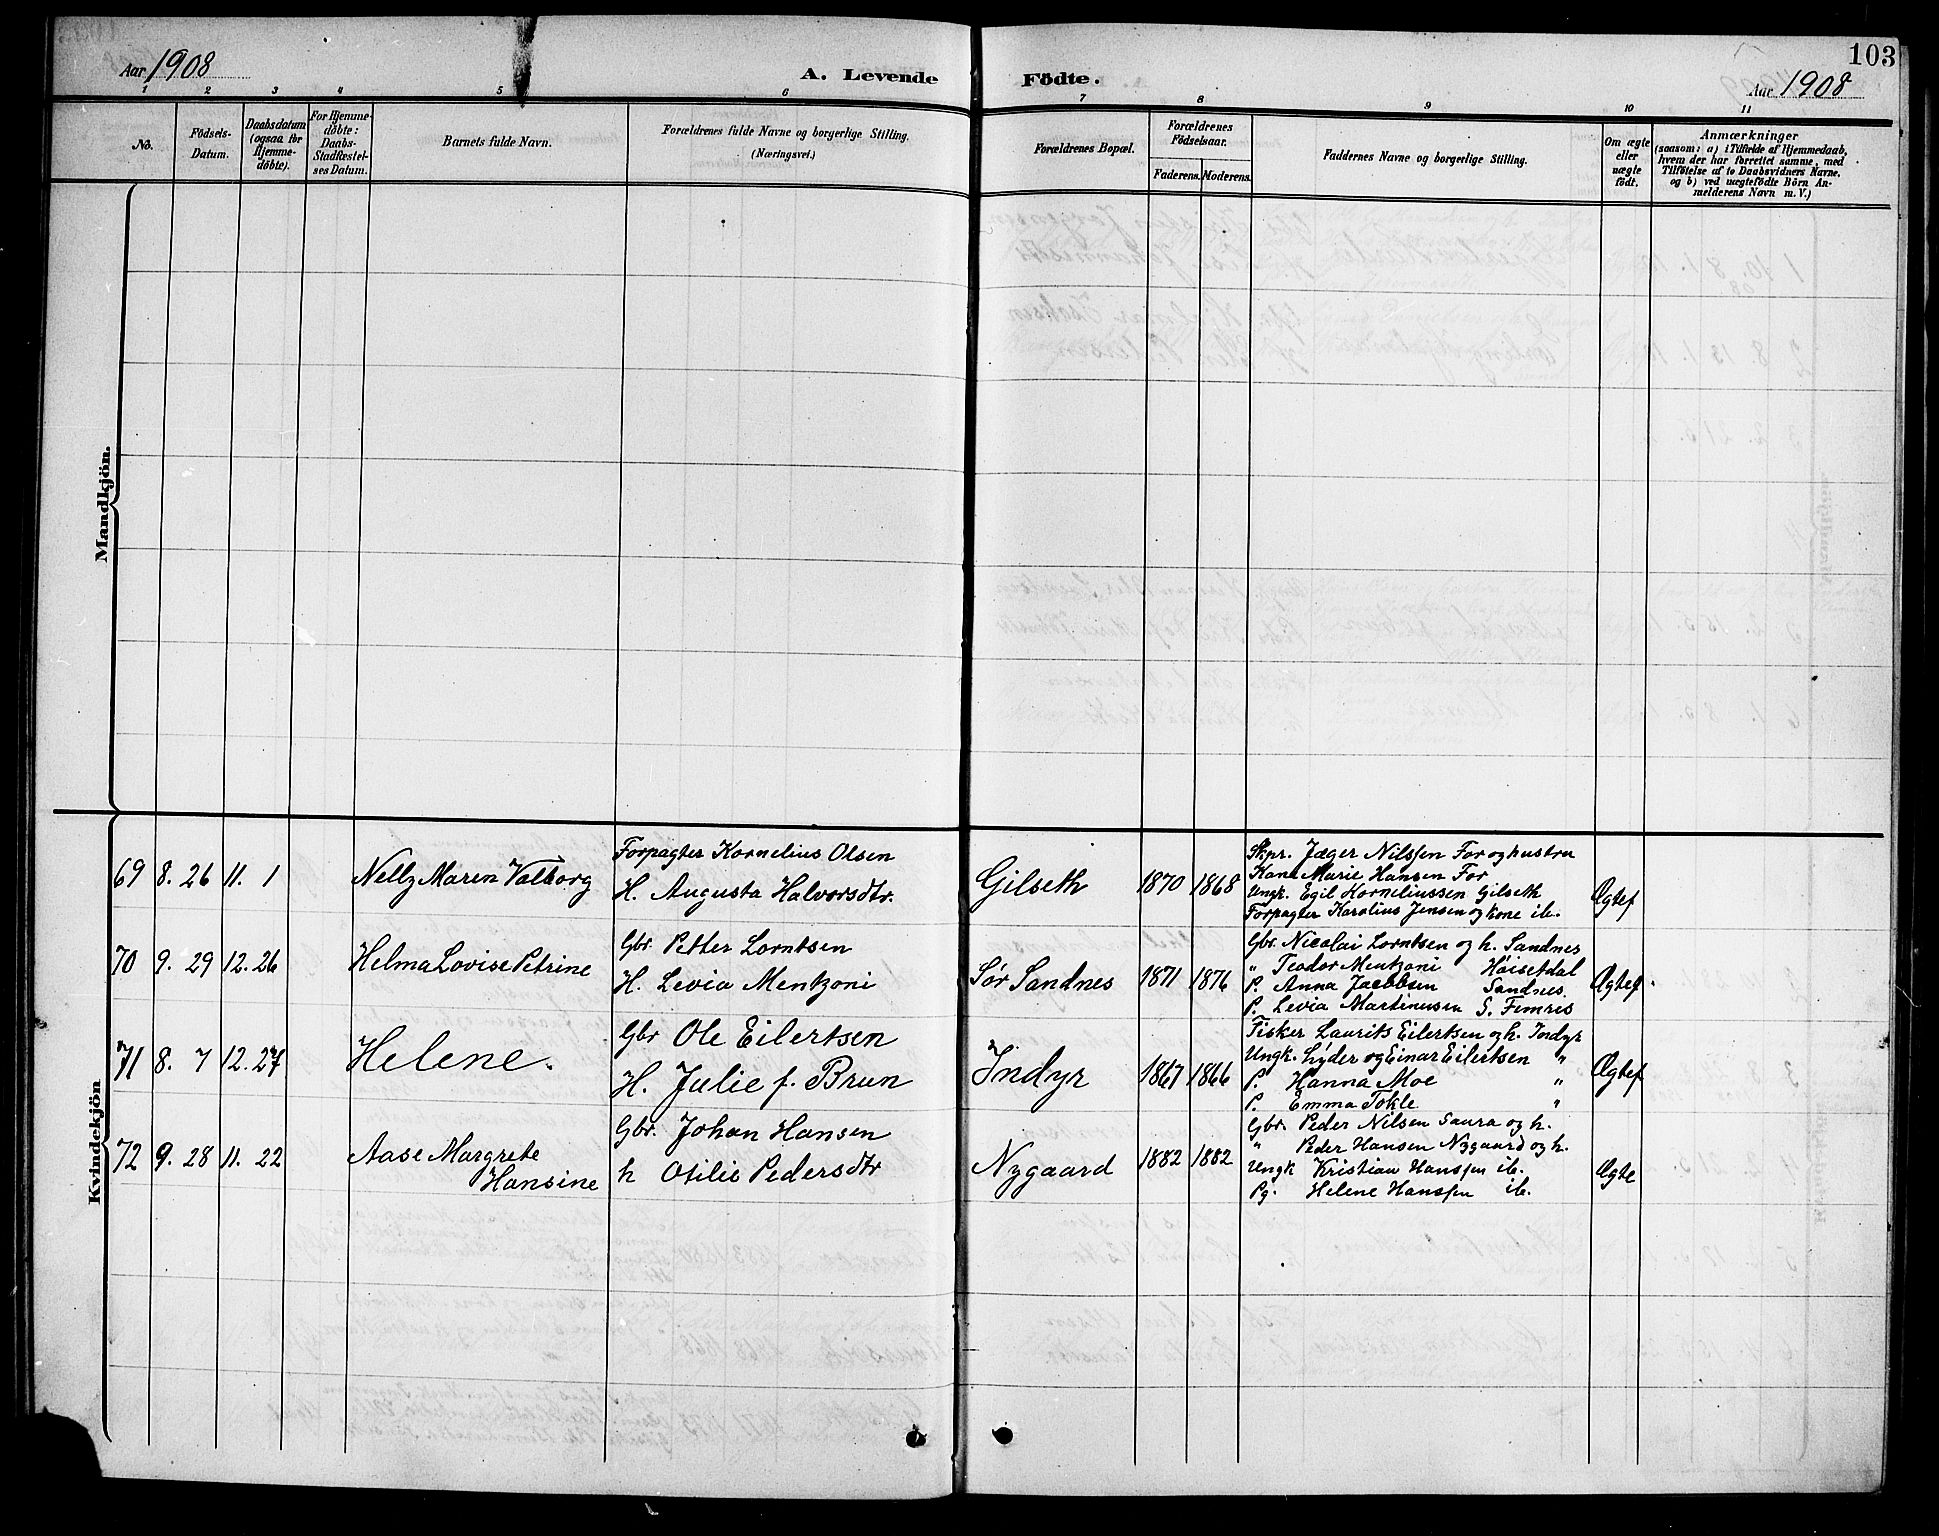 103
Aar 1908
A. Levende Födte.
Aar 1908
1 2 3 4 5 6 7 8 9 10 11
No.
Födsels-
Datum.
Daabsdatum
(ogsaa for
Hjemme-
döbte).
For Hjemme-
döbte:
Daabs-
Stadfæstel-
ses Datum.
Barnets fulde Navn.
Forældrenes fulde Navne og borgerlige Stilling.
(Næringsvei.)
Forældrenes Bopæl.
Forældrenes
Födselsaar.
Faderens. Moderens.
Faddernes Navne og borgerlige Stilling.
Om ægte
eller
uægte
födt.
Anmærkninger
(saasom: a) i Tilfælde af Hjemmedaab,
hvem der har forrettet samme, med
Tilföielse af to Daabsvidners Navne,
og b) ved uægtefödte Börn An-
melderens Navn m. V.)
Mandkjön.
Kvindekjön
69 8. 26 11. 1
Nelly Maren Valborg
Forpagter Kornelius Olsen
H. Augusta Halvorsdtr.
Gilseth
1870 1868
Skpr. Jæger Nilssen For og hustru
Kone Marie Hansen For
Ungk. Egil Korneliussen Gilseth
Forpagter Karolius Jensen og kone ib.
Ægtef
70 9. 29 12. 26
Helma Lovise Petrine
Gbr. Petter Lorntsen
H. Levia Mentzoni
Sør Sandnes
1871 1876
Gbr. Nicolai Lorntsen og h. Sandnes
" Teodor Mentzoni Höisetdal
P. Anna Jacobsen Sandnes.
P. Levia Martinusen S. Femres
Ægtef.
71 8. 7 12. 27
Helene.
Gbr Ole Eilertsen
H. Julie f. Brun
Indyr
1867 1866
Fisker Laurits Eilertsen og h. Indyr
Ungk. Lyder og Einar Eilertsen "
P. Hanna Moe "
P. Emma Tokle "
Ægtef
72 9. 28 11. 22
Aase Margrete
Hansine
Gbr. Johan Hansen
h Otilie Pedersdtr
Nygaard
1882 1882
Gbr. Peder Nilsen Saura og h.
" Peder Hansen Nygaard og h.
Ungk Kristian Hanssen ib.
Pg. Helene Hanssen ib.
Ægte